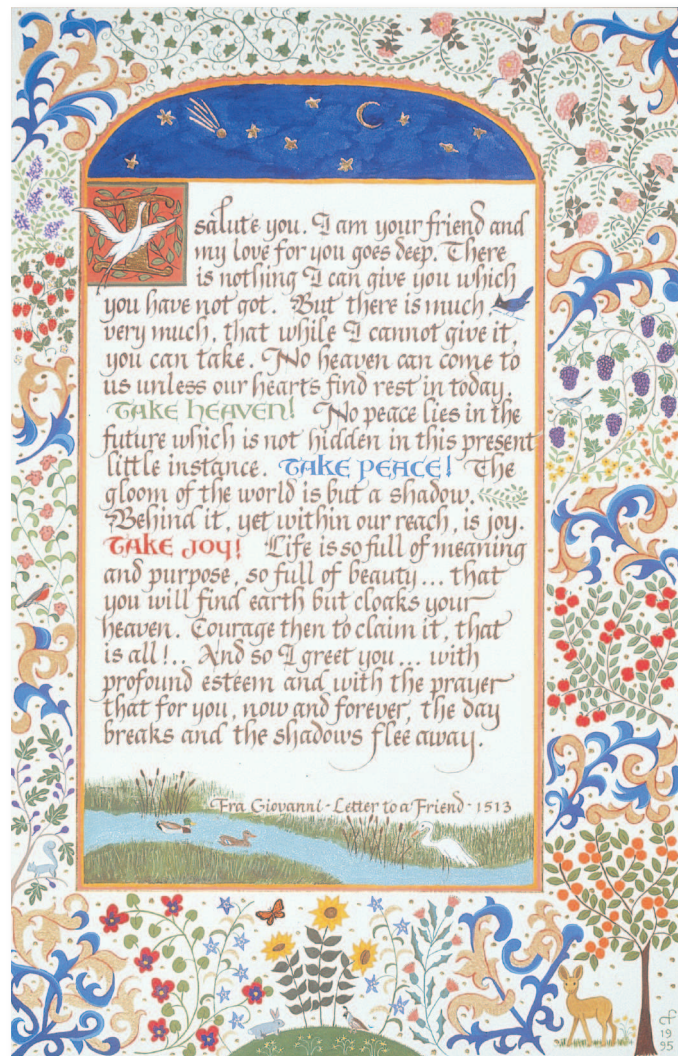 I salute you. I am your friend and
my love for you goes deep. There
is nothing I can give you which
you have not got. But there is much
very much, that while I cannot give it,
you can take. No heaven can come to
us unless our hearts find rest in today.
TAKE HEAVEN! No peace lies in the
future which is not hidden in this present
little instance. TAKE PEACE! The
gloom of the world is but a shadow.
Behind it, yet within our reach, is joy.
TAKE JOY! Life is so full of meaning
and purpose, so full of beauty... that
you will find earth but cloaks your
heaven. Courage then to claim it, that
is all!.. And so I greet you... with
profound esteem and with the prayer
that for you, now and forever, the day
breaks and the shadows flee away.
Fra Giovanni - Letter to a Friend - 1513
CF
19
95